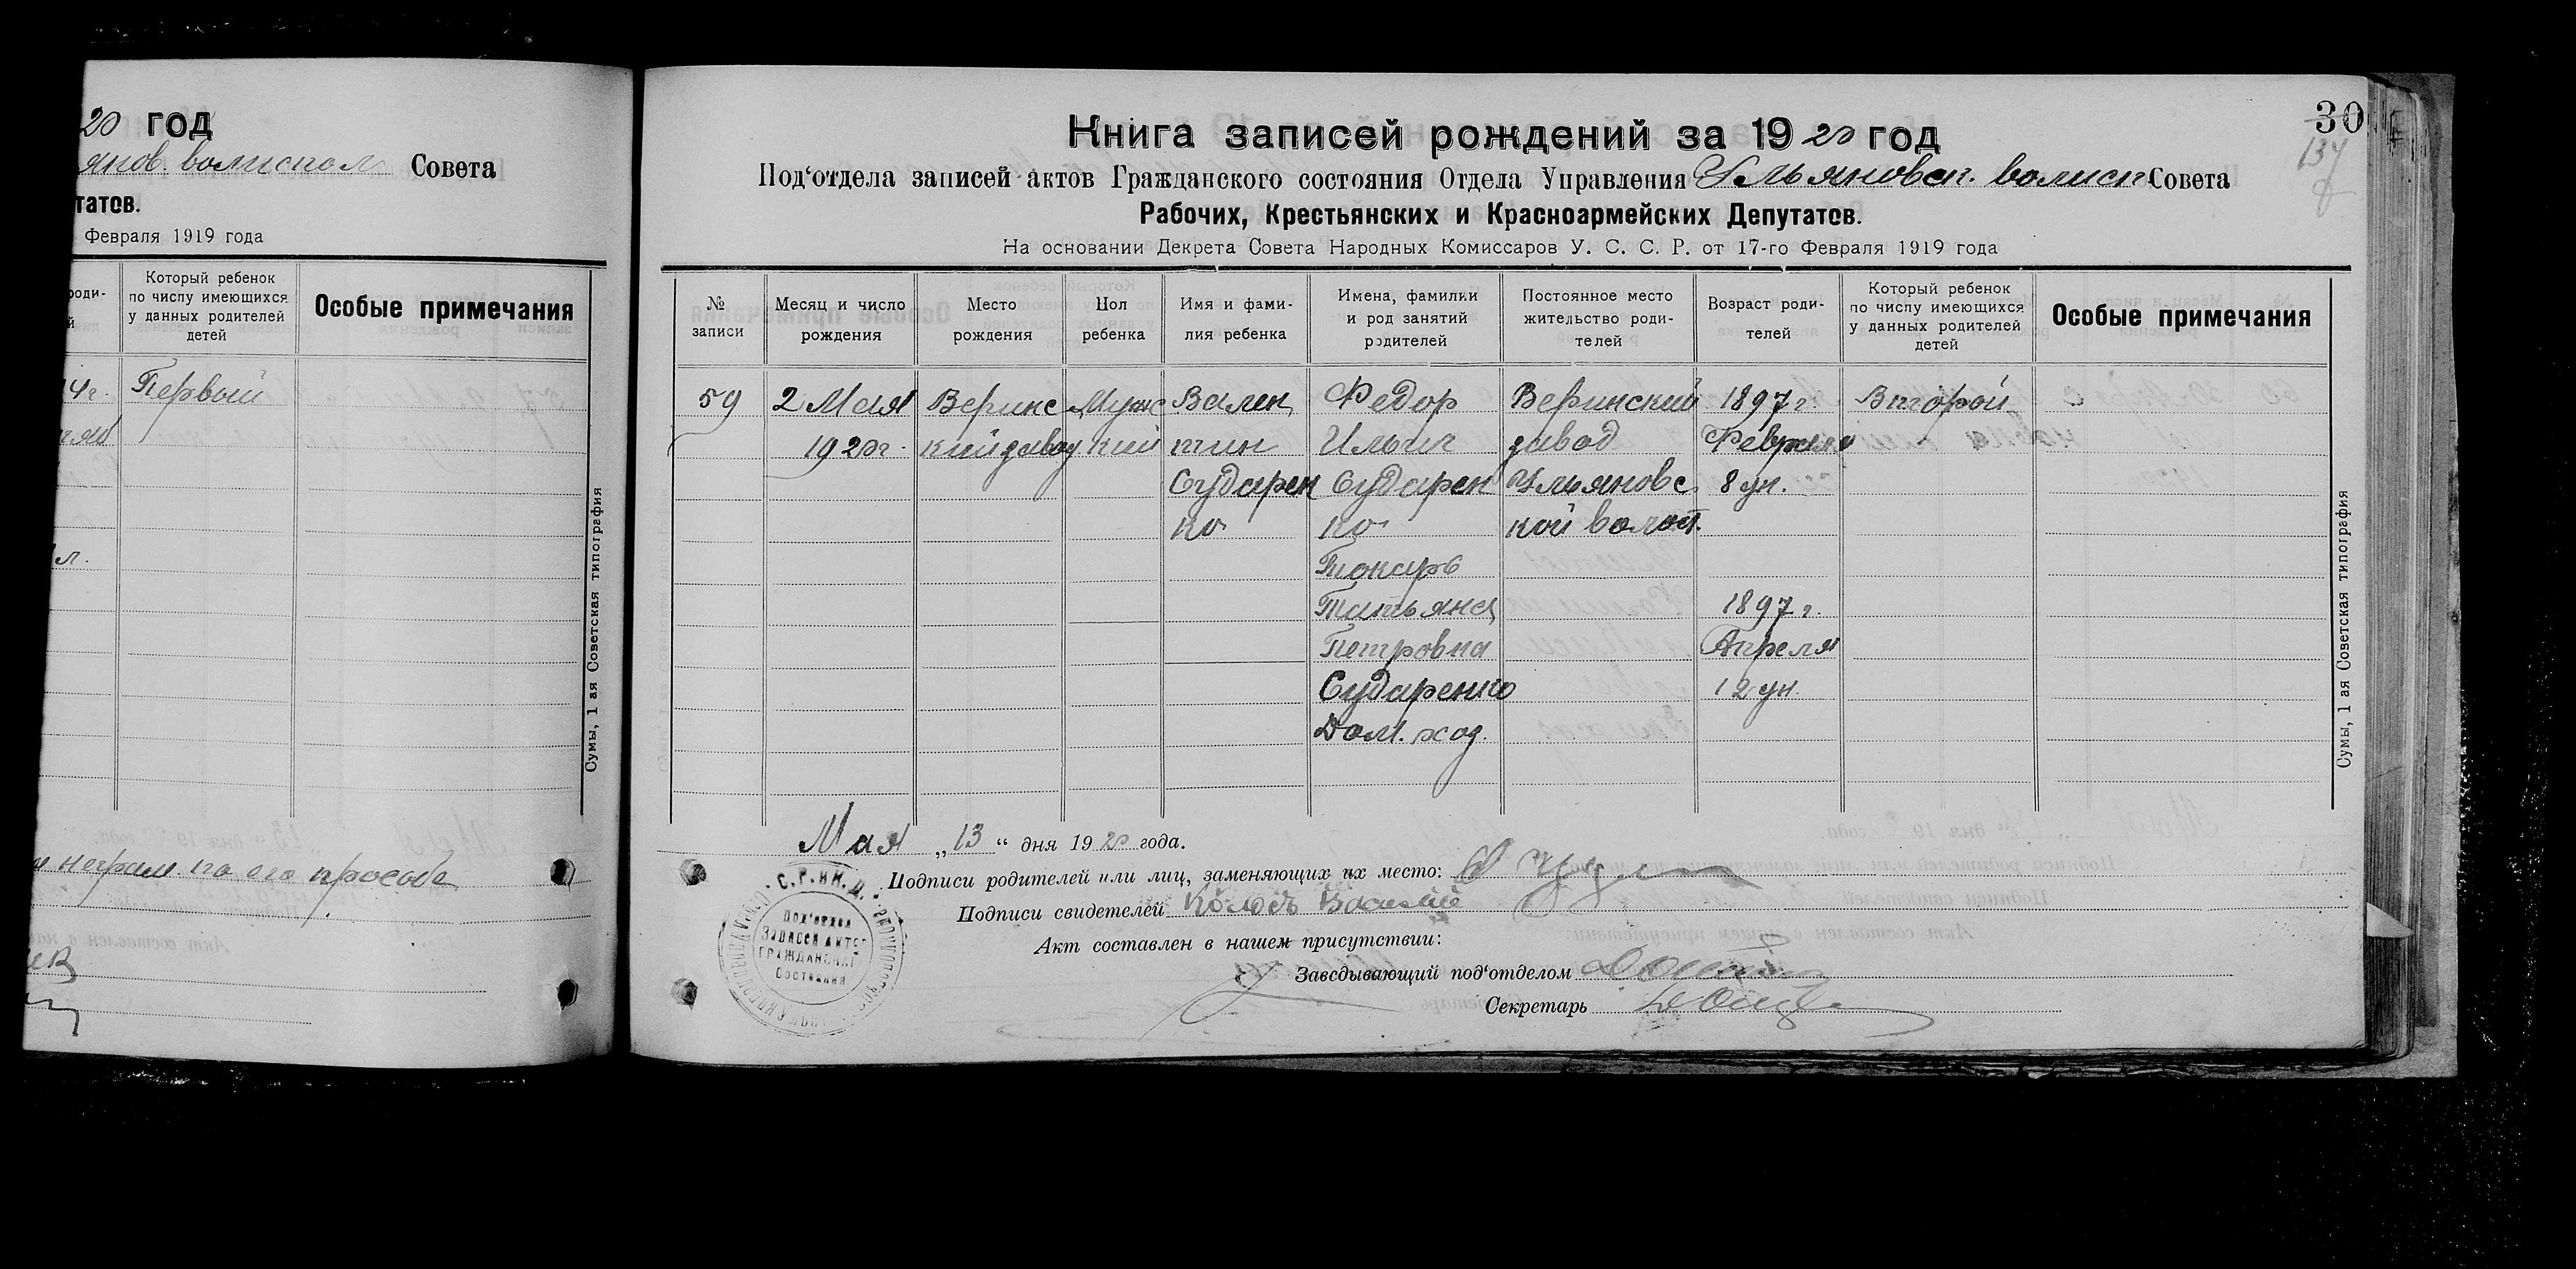 20 год
янов. волиспол Совета
татов.
Февраля 1919 года
Который ребенок
по числу имеющихся
у данных родителей
детей
Особые примечания
4г. Первый
л.
неграм. по его просьбе
Сумы, 1 ая Советская типография
30
134
Книга записей рождений за 1920 год
Под‘отдела записей актов Гражданского состояния Отдела Управления Ульяновск. волисп. Совета
Рабочих, Крестьянских и Красноармейских Депутатов.
На основании Декрета Совета Народных Комиссаров У. С. С. Р. от 17-го Февраля 1919 года
№ записи
Месяц и число рождения
Место рождения
Пол ребенка
Имя и фами-
лия ребенка
Имена, фамилии
и род занятий
родителей
Постоянное место
жительство роди-
телей
Возраст роди-
телей
Который ребенок
по числу имеющихся
у данных родителей
детей
Особые примечания
59 2 Мая Веринс Мужс Вален Федор Веринский 1897 г. Второй
1920 г. кий завод кий тин Ильич завод Февраля
Сударен Сударен Ульяновс 8 дн.
ко ко кой волост.
Токарь
Татьяна 1897 г.
Петровна Апреля
Сударенко 12 дн.
Дом. хоз.
Мая „13“ дня 1920 года.
Подписи родителей или лиц, заменяющих их место:
Подписи свидетелей Колосъ Василий
Акт составлен в нашем присутствии:
Заведывающий под‘отделом
Секретарь
Под‘отдел
Записи актов
Гражданскаг
Состояния
Сумы, 1 ая Советская типография